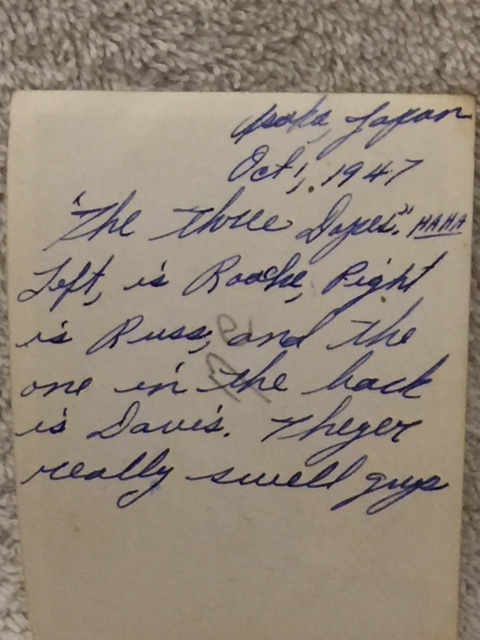 Osaka, Japan
Oct 1, 1947
"The Three Dopes". HAHA
Left, is Roache, Right
is Russ, and the
one in the back
is Davis. Theyer
really swell guys